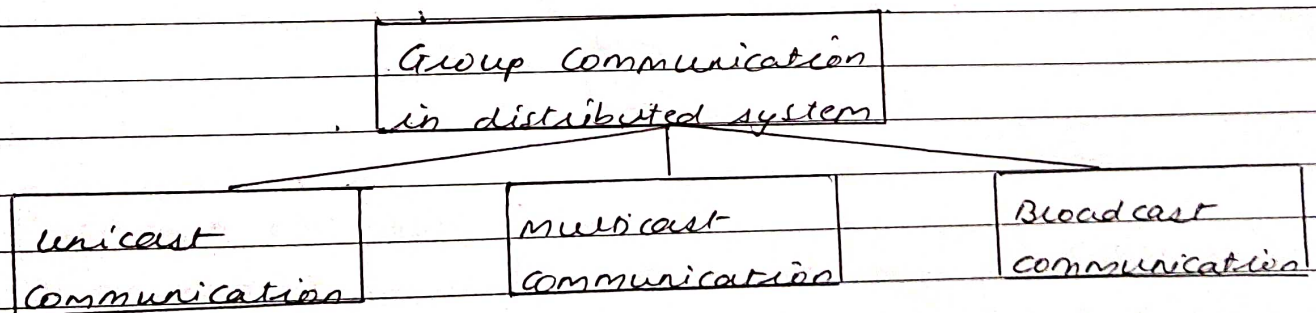 Group Communication
in distributed system
Unicast
communication
Multicast
communication
Broadcast
communication